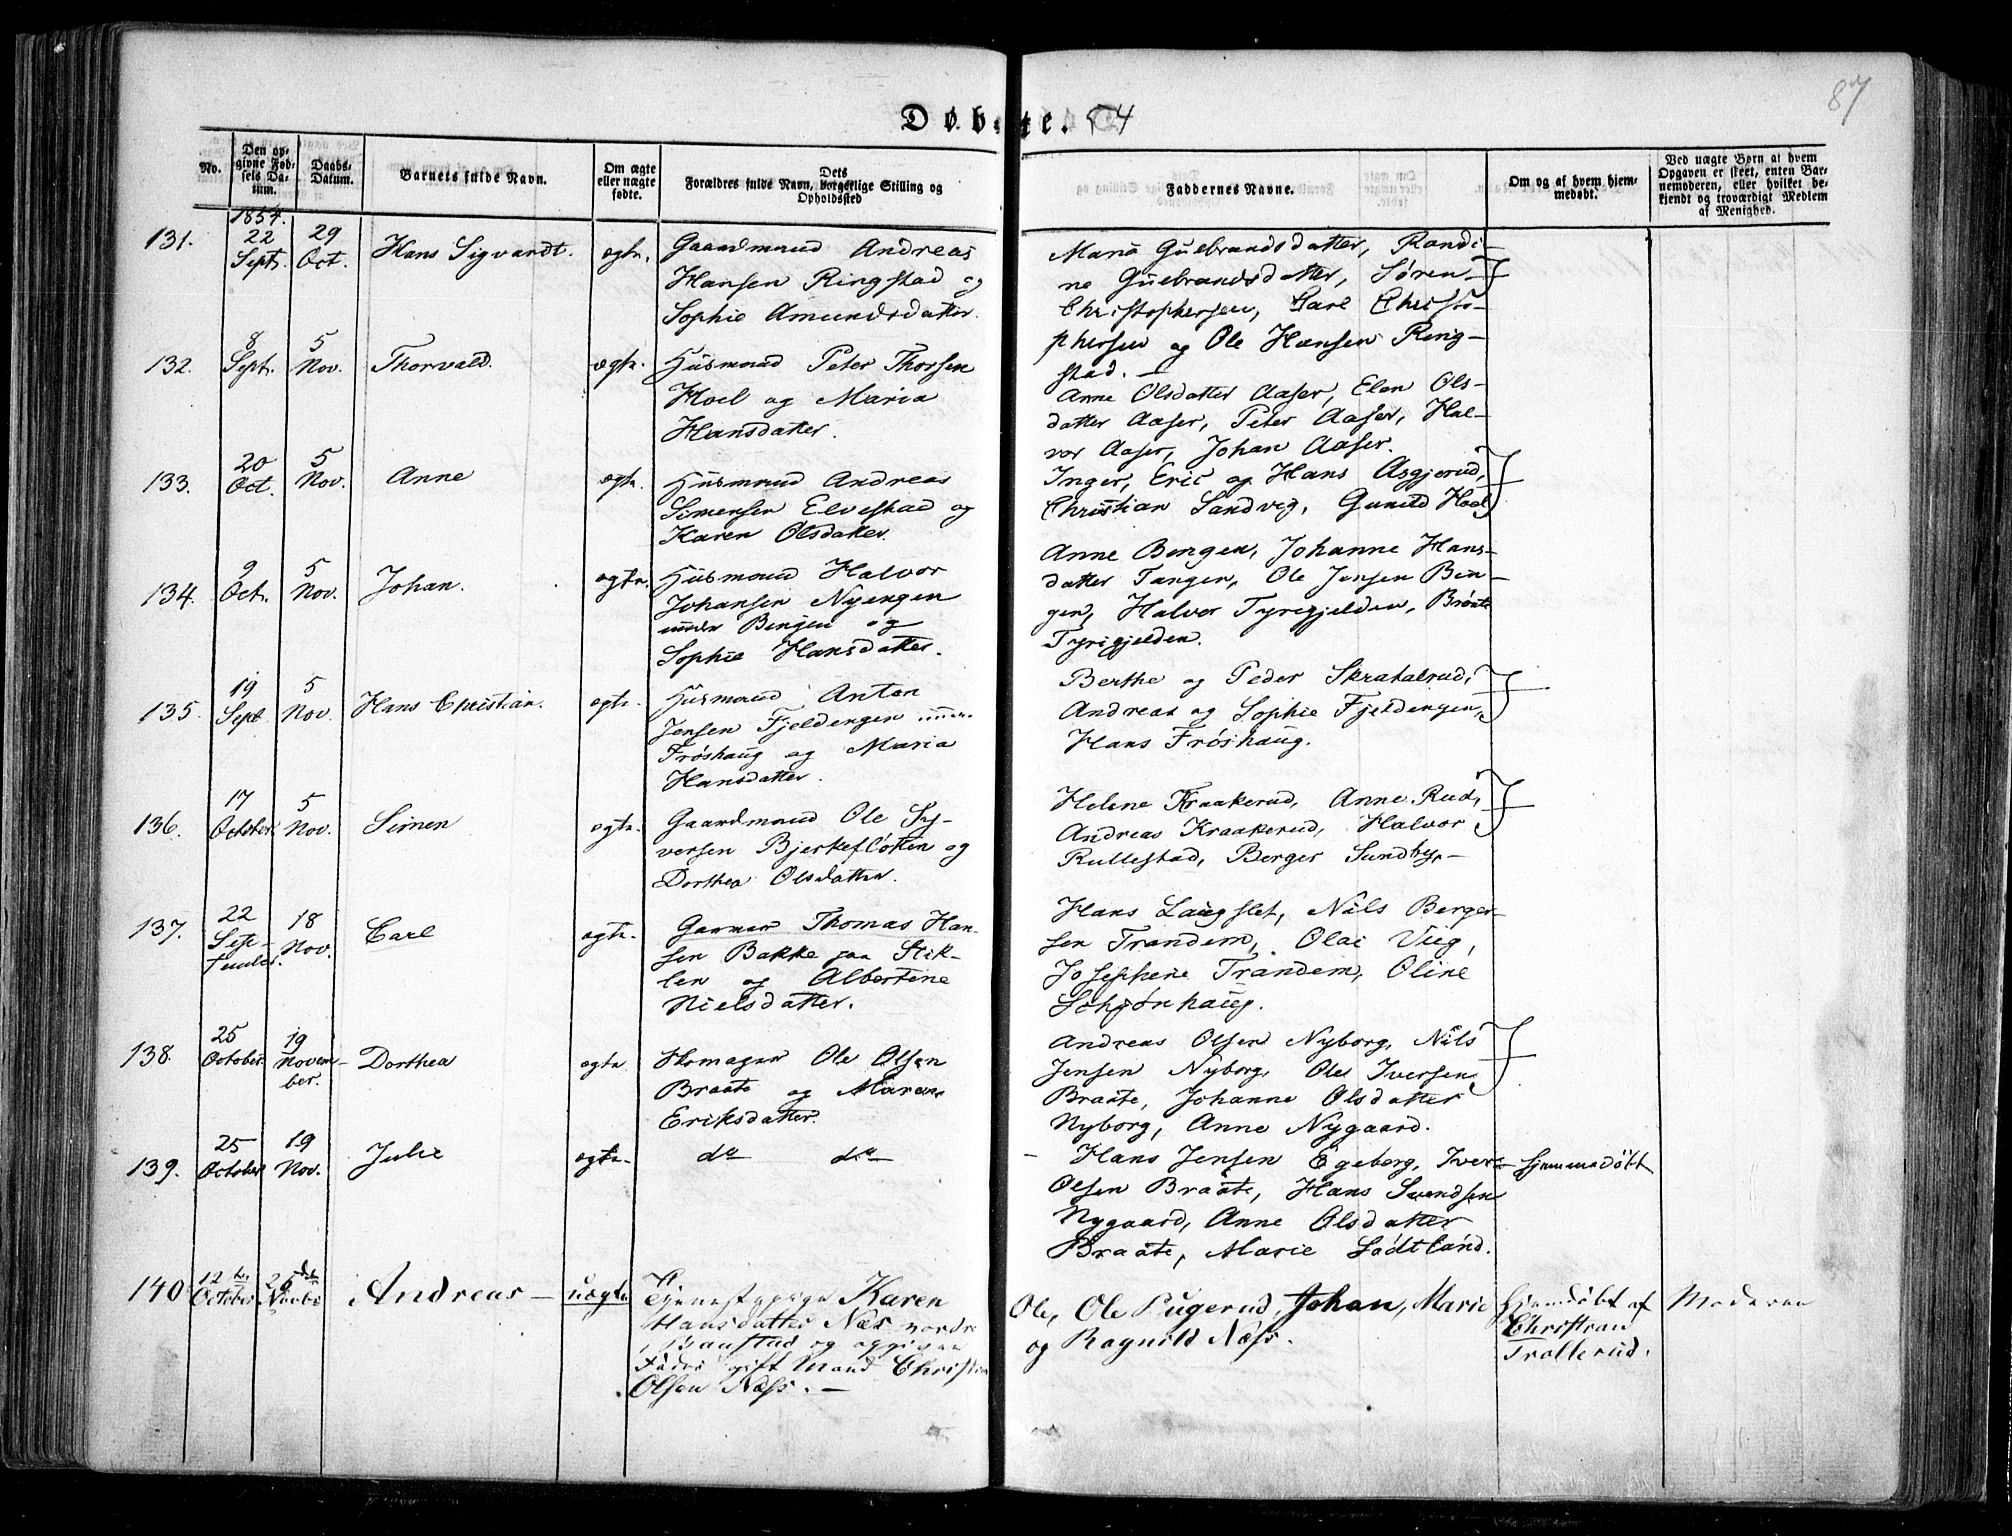 87
Døbte. 54
No.
Den opgivne Fødsels Datum.
Daabs-Datum.
Barnets fulde Navn.
Om ægte eller uægte fødte.
Dets Forældres fulde Navn, borgerlige Stilling og Opholdssted
Faddernes Navne.
Om og af hvem hjemmedøbt.
Ved uægte Børn at hvem Opgaven er skeet, enten Barnemoderen, eller hvilket bekjendt og troværdigt Medlem af Menighed.
1854.
131. 22 Sept. 29 Oct. Hans Sigvardt. ægte. Gaardmand Andreas
Hansen Ringstad og
Sophie Amundsdatter.
Maria Gulbrandsdatter, Randi-
ne Gulbrandsdatter, Søren
Christophersen, Carl Christo-
phersen og Ole Hansen Ring-
stad. —
132. 8 Sept. 5 Nov. Thorvald. ægte. Husmand Peter Thorsen
Hoel og Maria
Hansdatter.
Anne Olsdatter Aaser, Elen Ols-
datter Aaser, Peter Aaser, Hal-
vor Aaser, Johan Aaser.
133. 20 Oct. 5 Nov. Anne ægte. Husmand Andreas
Simensen Elvestad og
Karen Olsdatter.
Inger, Eric og Hans Asgjerud,
Christian Sandvig, Gunild Hoel
134. 9 Oct. 5 Nov. Johan. ægte. Husmand Halvor
Johansen Nyengen
under Bengen og
Sophie Hansdatter.
Anne Bengen, Johanne Hans-
datter Tangen, Ole Jensen Ben-
gen, Halvor Tyrigjelden, Brønte
Tyrigjelden.
135. 19 Sept 5 Nov. Hans Christian. ægte. Husmand Anton
Jensen Fjeldengen under
Frøshaug og Maria
Hansdatter.
Berthe og Peder Skratalrud,
Andreas og Sophie Fjeldengen,
Hans Frøshaug.
136. 17 October 5 Nov. Simen ægte. Gaardmand Ole Sy-
versen Bjerkefløtten og
Dorthea Olsdatter.
Helene Kraakerud, Anne Rud,
Andreas Kraakerud, Halvor
Rullestad, Berger Sundby. —
137. 22 Sep-tember. 18 Nov. Carl ægte. Garver Thomas Han-
sen Bakke paa Stik-
len og Albertine
Nielsdatter.
Hans Laugslet, Nils Berger-
sen Trandem, Olai Vieg,
Josephine Trandem, Oline
Schjønhaug.
138. 25 October. 19 Novem-ber. Dorthea ægte Skomager Ole Olsen
Braate og Maren
Eriksdatter.
Andreas Olsen Nyborg, Nils
Jensen Nyborg, Ole Iversen
Braate, Johanne Olsdatter
Nyborg, Anne Nygaard.
139. 25 October 19 Nov. Julie ægte. do do
Hans Jensen Egeberg, Iver Hjemmedøbt
Olsen Braate, Hans Svendsen
Nygaard, Anne Olsdatter
Braate, Marie Lødtland.
140 12te October 26de Novbr Andreas — uægte Tjenestepige Karen
Hansdatter Næs nordre
og opgiven
Fader gift Mand Christian
Olsen Næss. —
Ole, Ole Pugerud, Johan, Marie
og Ragnild Næss.
Hjemdøbt af
Christian
Trollerud.
Moderen